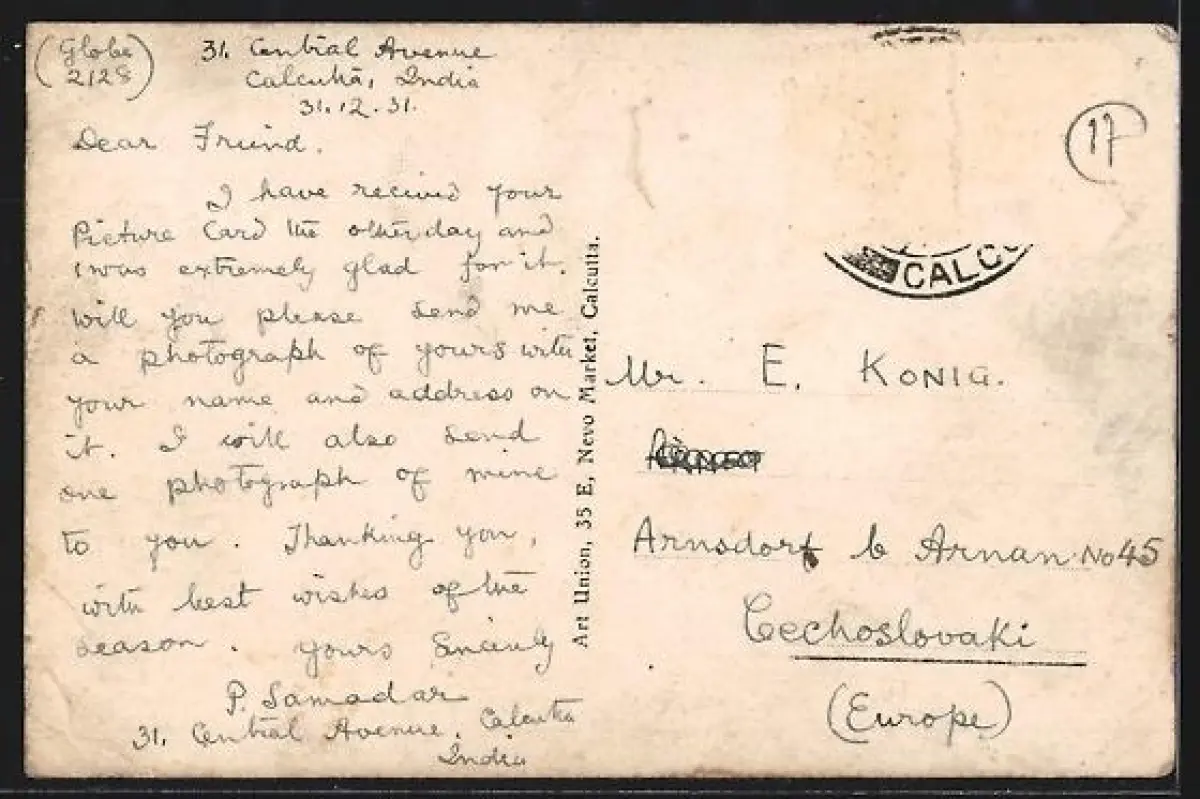 (Globe
2128)
31, Central Avenue
Calcutta, India
31.12.31.
Dear Friend,
I have received your
Picture Card the other day and
I was extremely glad for it.
Will you please send me
a photograph of yours with
your name and address on
it. I will also send
one photograph of mine
to you. Thanking you,
with best wishes of the
season. Yours Sincerely
P. Samadar
31, Central Avenue, Calcutta
India
Art Union, 35 E, Nevo Market, Calcutta.
17
CALC
Mr. E. KONIG.
Arnsdorf b Arnan No 45
Cechoslovaki
(Europe)